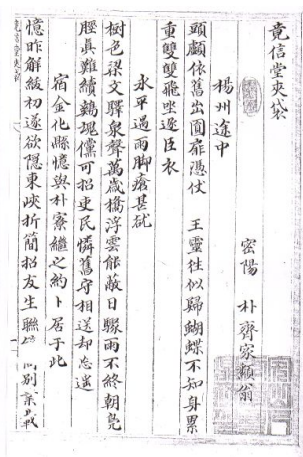 竟信堂夾袋
密陽 朴齊家顛翁
楊州途中
頭顱依舊出圓扉憑仗 王靈往似歸蝴蝶不知身累
重雙雙飛坐逐臣衣
永平過雨脚瘡甚㱡
樹色梁文驛泉聲萬歲橋浮雲能蔽日驟雨不終朝鳧
脛眞難續鷄瑰儻可招吏民憐舊守相送却忘遙
宿金化縣憶與朴寮繼之約卜居于此
憶昨解紱初遂欲隱東峽折簡招友生聯 別業